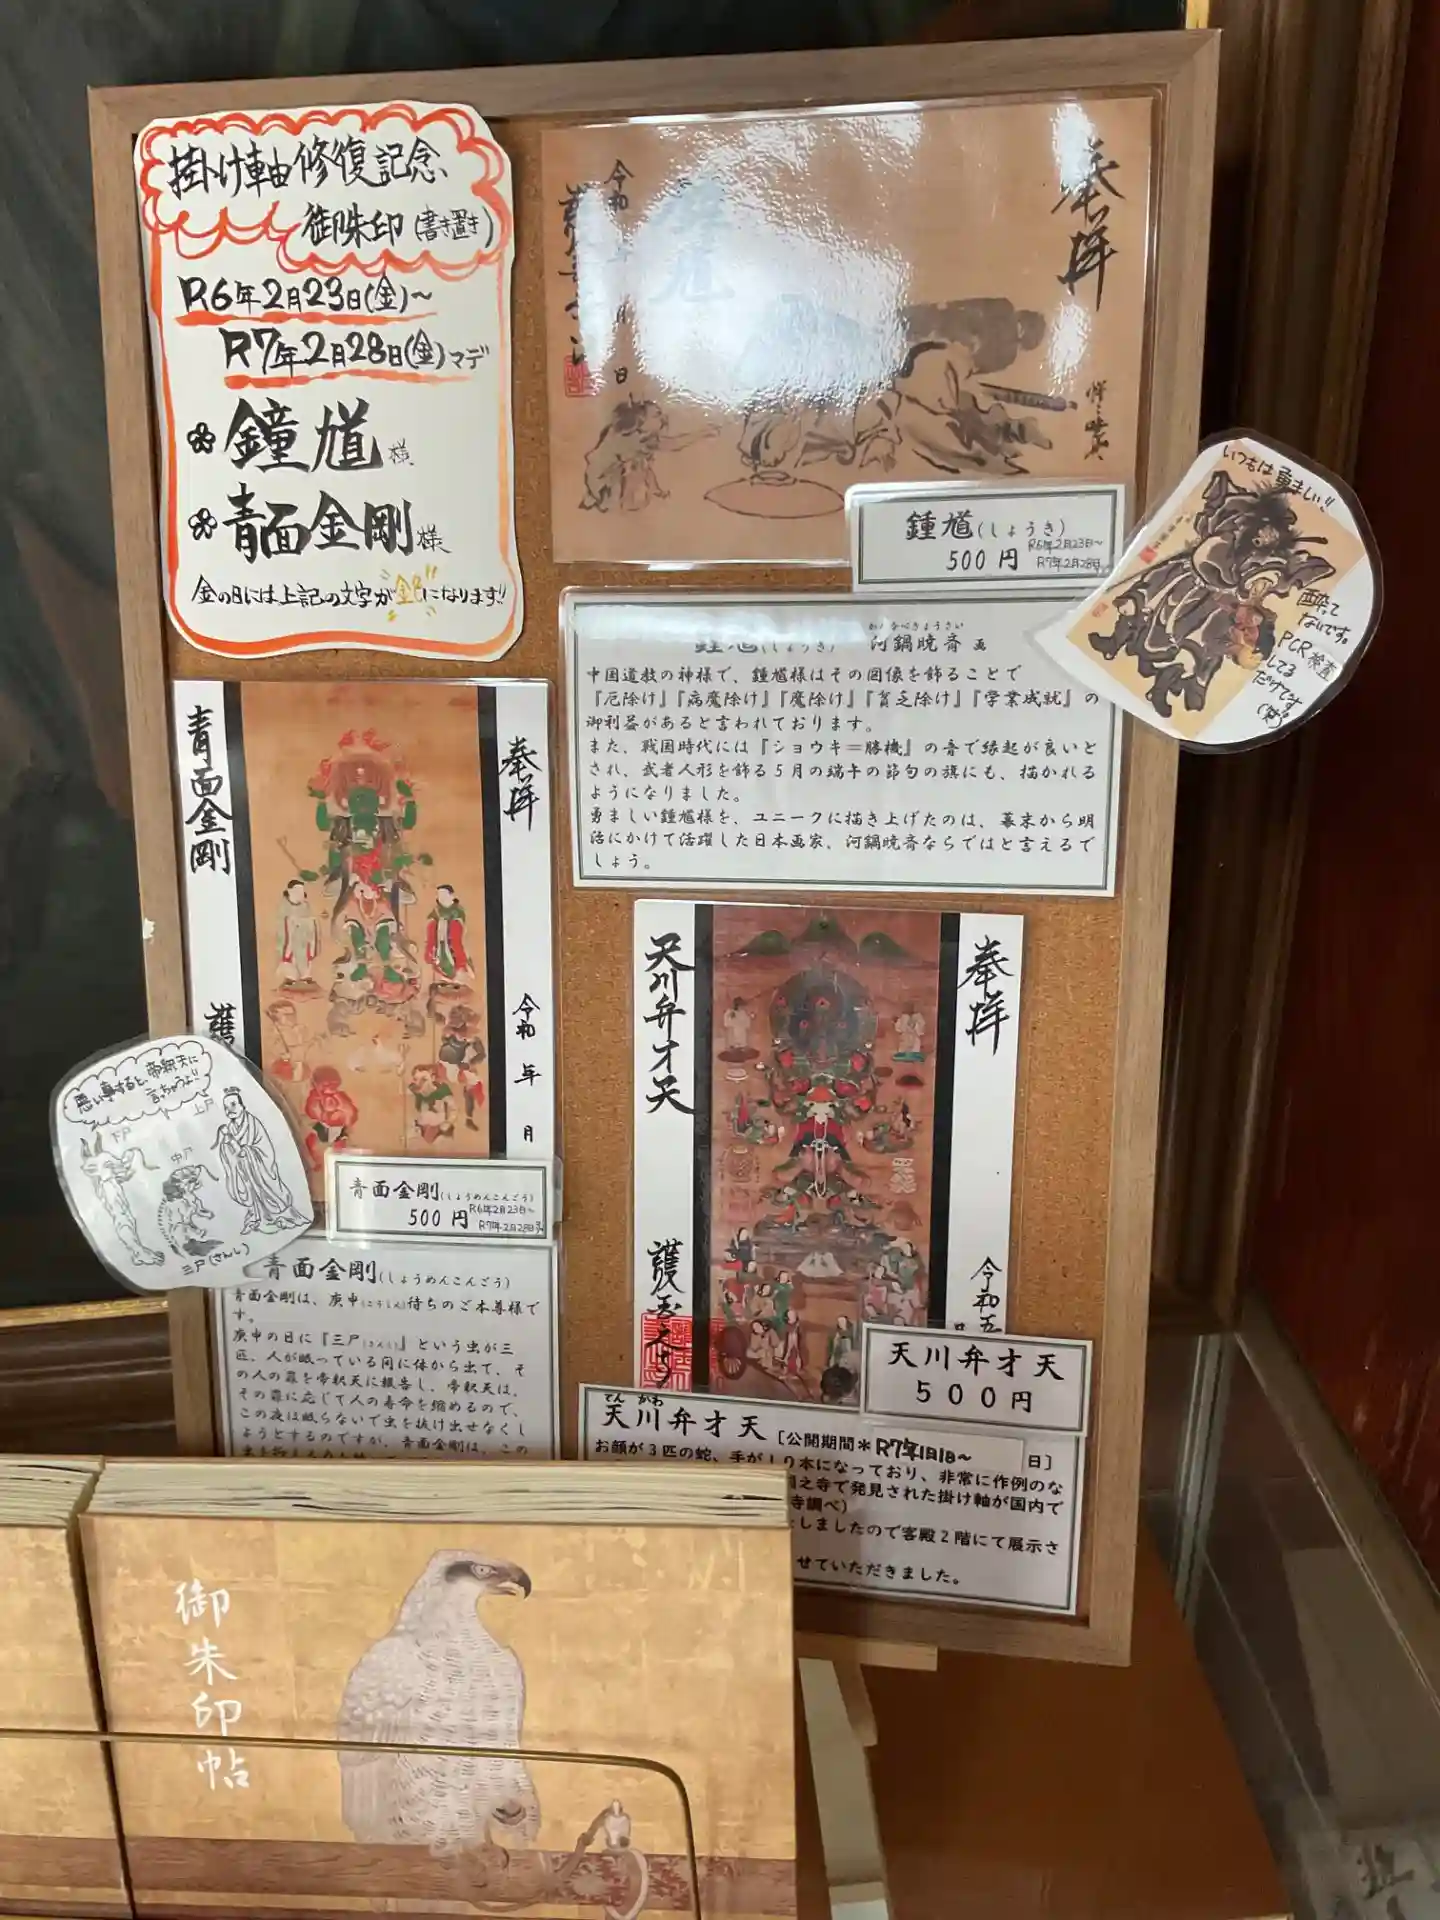 掛け軸修復記念
御朱印(書き置き)
R6年2月23日(金)~
R7年2月28日(金)マデ
鐘馗様
青面金剛様
金の日には上記の文字が"金色"になります!!
奉拝
令和
日
鍾馗(しょうき)
500円
R6年2月23日~
R7年2月28日
いつもは勇ましい!!
酔って
ないです。
PCR検査
してる
だけです!!
(しょうき) 河鍋暁斎 画
かわなべきょうさい
中国道教の神様で、鍾馗様はその図像を飾ることで
『厄除け』『病魔除け』『魔除け』『貧乏除け』『学業成就』の
御利益があると言われております。
また、戦国時代には『ショウキ=勝機』の音で縁起が良いと
され、武者人形を飾る5月の端午の節句の旗にも、描かれる
ようになりました。
勇ましい鍾馗様を、ユニークに描き上げたのは、幕末から明
治にかけて活躍した日本画家、河鍋暁斎ならではと言えるで
しょう。
奉拝
青面金剛
令和 年 月
護
悪い事すると、帝釈天に
言っちゃうよ!!
上尸
中尸
下尸
三尸(さんし)
青面金剛(しょうめんこんごう)
500円
R6年2月23日~
R7年2月28日
青面金剛(しょうめんこんごう)
青面金剛は、庚申(こうしん)待ちのご本尊様で
す。
庚申の日に『三尸(さんし)』という虫が三
匹、人が眠っている間に体から出て、そ
の人の罪を帝釈天に報告し、帝釈天は、
その罪に応じて人の寿命を縮めるので、
この夜は眠らないで虫を抜け出せなくし
ようとするのですが、青面金剛は、この
奉拝
天川弁才天
令和五
天川弁才天
500円
てん かわ
天川弁才天 [公開期間*R7年1月1日~ 日]
お顔が3匹の蛇、手が10本になっており、非常に作例のな
之寺で発見された掛け軸が国内で
寺調べ)
しましたので客殿2階にて展示さ
せていただきました。
御朱印帖